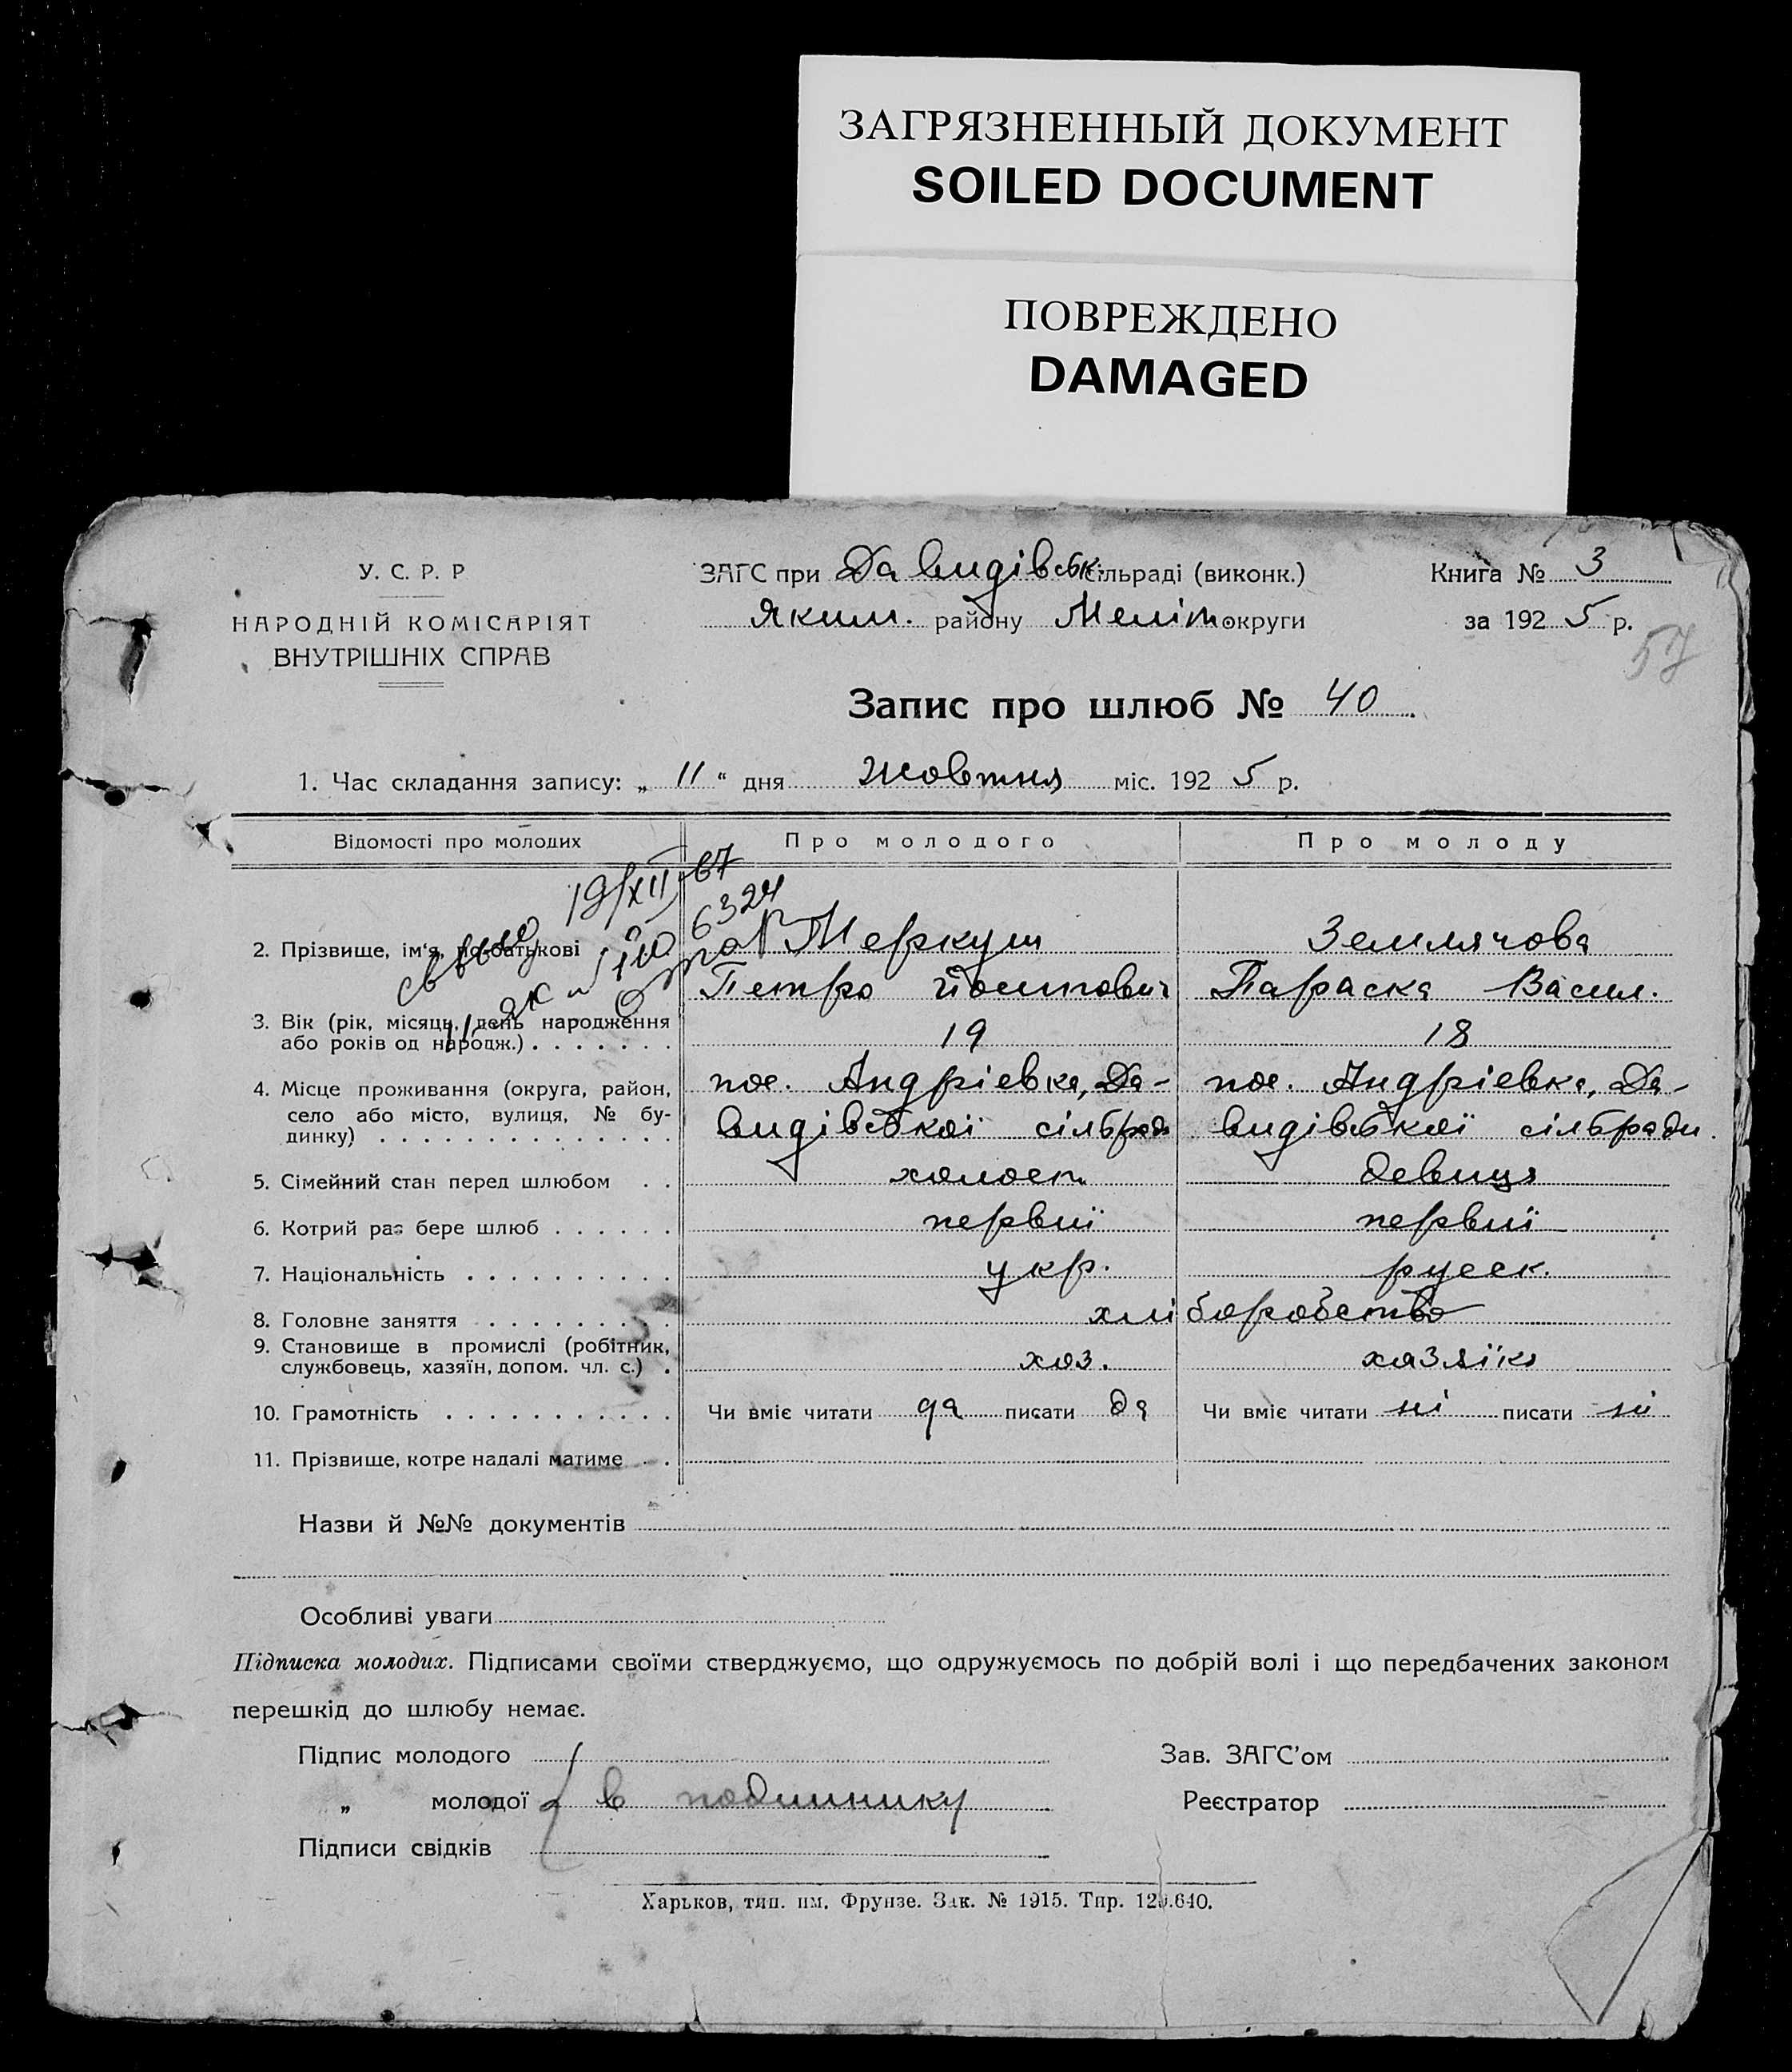 ЗАГРЯЗНЕННЫЙ ДОКУМЕНТ
SOILED DOCUMENT
ПОВРЕЖДЕНО
DAMAGED
У. С. Р. Р
НАРОДНІЙ КОМІСАРІЯТ
ВНУТРІШНІХ СПРАВ
ЗАГС при Давидівськ. сільраді (виконк.)
Яким. району Меліт. округи
Книга № 3
за 1925 р.
57
Запис про шлюб № 40
1. Час складання запису: „ 11 “ дня Жовтня міс. 1925 р.
Відомості про молодих Про молодого Про молоду
19/XII 67
6324
2. Прізвище, ім'я, по батькові Меркуш Землячова
Петро Параска Васил.
3. Вік (рік, місяць, день народження
або років од народж.) 19 18
4. Місце проживання (округа, район, пос. Андрієвка, Да- пос. Андрієвка, Да-
село або місто, вулиця, № бу- видівської сільради видівської сільради
динку)
5. Сімейний стан перед шлюбом холост. девиця
6. Котрий раз бере шлюб первиї первиї
7. Національність укр. русск.
8. Головне заняття хліборобство
9. Становище в промислі (робітник,
службовець, хазяїн, допом. чл. с.) хоз. хазяїка
10. Грамотність Чи вміє читати да писати да Чи вміє читати ні писати ні
11. Прізвище, котре надалі матиме
Назви й №№ документів
Особливі уваги
Підписка молодих. Підписами своїми стверджуємо, що одружуємось по добрій волі і що передбачених законом
перешкід до шлюбу немає.
Підпис молодого Зав. ЗАГС'ом
„ молодої в подлиннику Реєстратор
Підписи свідків
Харьков, тип. им. Фрунзе. Зак. № 1915. Тир. .640.